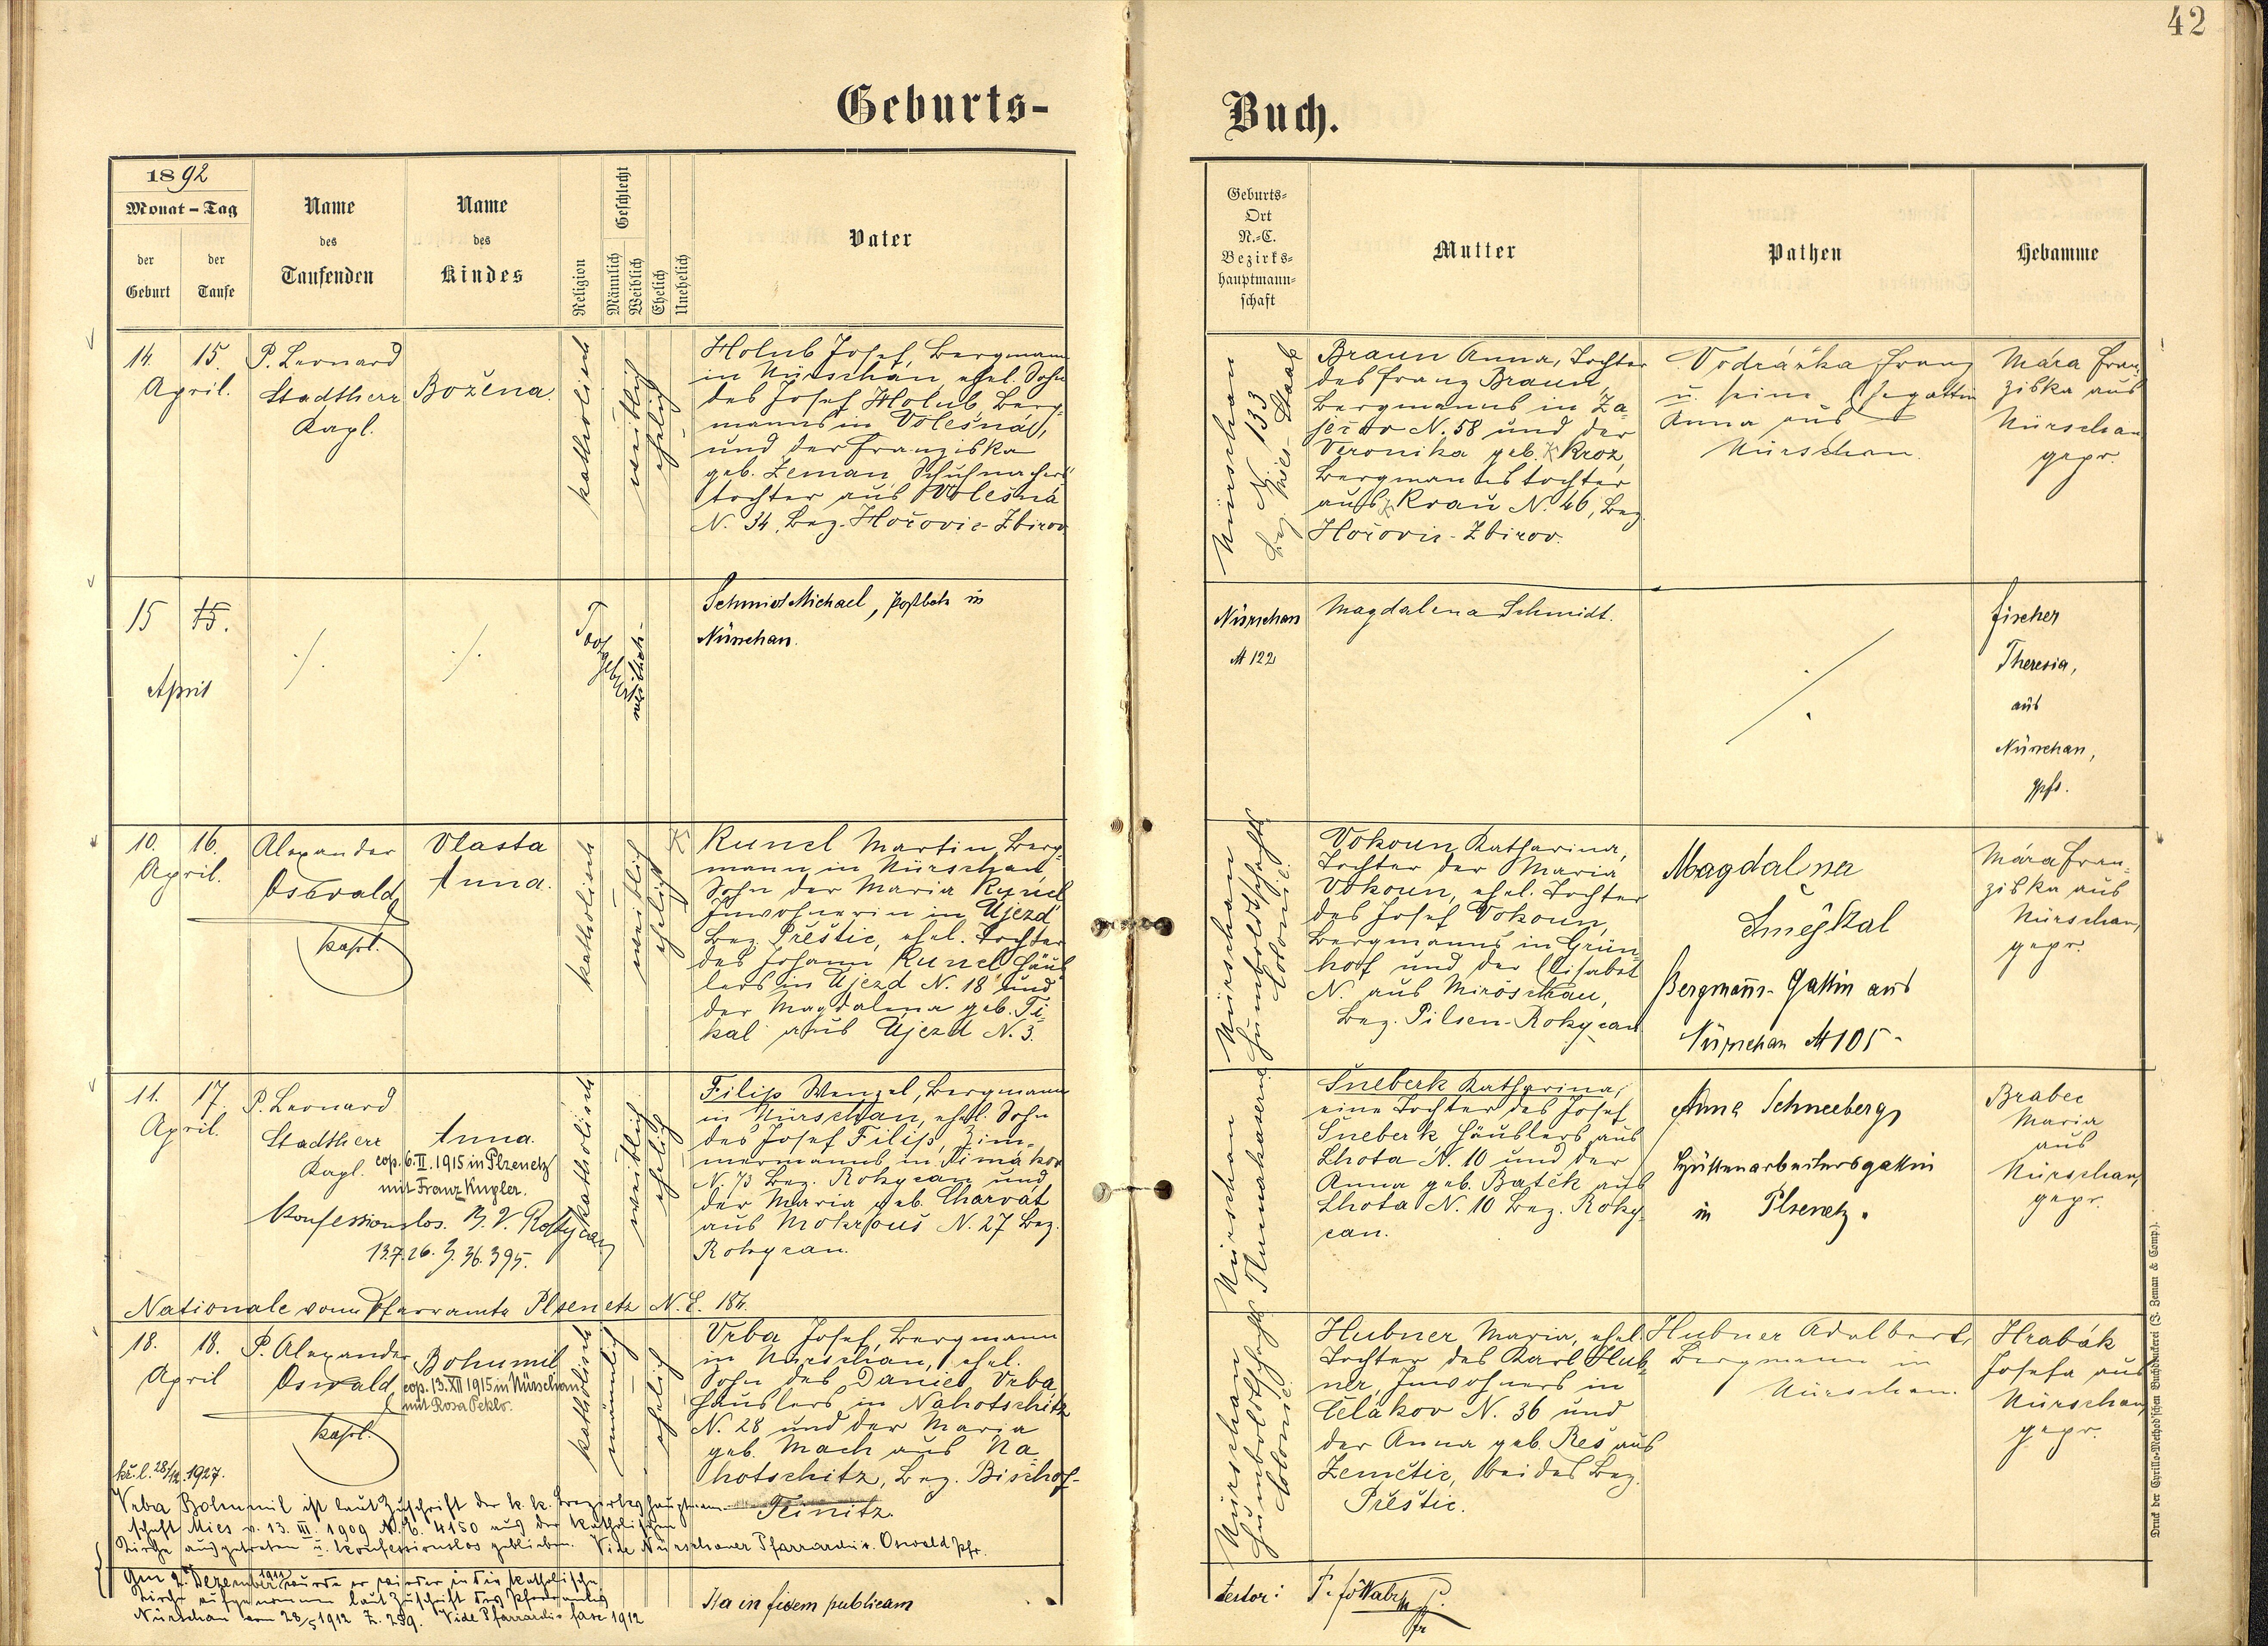 42
Geburts-
Buch.
1892
Monat - Tag
der
Geburt
der
Taufe
Name
des
Taufenden
Name
des
Kindes
Religion
Geschlecht
Männlich
Weiblich
Ehelich
Unehelich
Vater
Geburts-
Ort
N.-C.
Bezirks-
hauptmann-
schaft
Mutter
Pathen
Hebamme
14. 15.
April.
P. Leonard
Stadtherr
Kapl.
Božena.
katholisch
weiblich
ehelich
Holub Josef, Bergmann
in Nürschan, ehel. Sohn
des Josef Holub, Berg-
manns in Volešná,
und der Franziska
geb. Zeman, Schuhmachers
tochter aus Volešná
N. 34, Bez. Hořovic-Zbirov
Nürschan
N. 133
Bez. Mies-Staab
Braun Anna, Tochter
des Franz Braun,
Bergmanns in Za-
ječov N. 58 und der
Veronika geb. Kroz,
Bergmannstochter
aus Krau N. 46, Bez.
Hořovic-Zbirov.
Vodrážka Franz
u. seine Ehegattin
Anna aus
Nürschan.
Mára Fran-
ziska aus
Nürschan
gepr.
15 15.
April
./.
./.
Todtgeburt
weiblich
Schmidt Michael, Postbote in
Nürschan.
Nürschan
N 122
Magdalena Schmidt.
./.
Fischer
Theresia,
aus
Nürschan,
gpft.
10. 16.
April.
Alexander
Oswald
Kapl.
Vlasta
Anna.
katholisch
weiblich
ehelich
Kuncl Martin, Berg-
mann in Nürschan,
Sohn der Maria Kuncl
Inwohnerin in Ujezd
Bez. Přeštic, ehel. Tochter
des Johann Kuncl, Häus-
lers in Ujezd N. 18 und
der Magdalena geb. Ti-
kal aus Ujezd N. 3.
Nürschan
Humboldtschachts
Colonie.
Vokoun Katharina,
Tochter der Maria
Vokoun, ehel. Tochter
des Josef Vokoun,
Bergmanns in Grün-
hof und der Elisabet
N. aus Miröschau,
Bez. Pilsen-Rokycan
Magdalena
Smejkal
Bergmanns-Gattin aus
Nürschan N 105-
Mára Fran-
ziska aus
Nürschan,
gepr.
11. 17.
April.
P. Leonard
Stadtherr
Kapl.
Anna.
cop. 6. II. 1915 in Plzenetz
mit Franz Kugler.
Konfessionslos. B. V. Rokycan
13.7.26. Z. 36.395.
Nationale vom Pfarramte Plsenetz N. E. 187.
katholisch
weiblich
ehelich
Filip Wenzel, Bergmann
in Nürschan, ehel. Sohn
des Josef Filip, Zim-
mermanns in
N. 13 Bez. Rokycan und
der Maria geb. Charvát
aus Mokrouš N. 27 Bez.
Rokycan.
Nürschan
Thurnkaserne
Šneberk Katharina,
eine Tochter des Josef
Šneberk Häuslers aus
Lhota N. 10 und der
Anna geb. Bašek aus
Lhota N. 10 Bez. Roky-
can.
Anna Schneeberg,
Hüttenarbeitersgattin
in Plsenetz.
Brabec
Maria
aus
Nürschan,
gepr.
18. 18.
April
P. Alexander
Oswald
Kapl.
Bohumil
cop. 13. XII 1915 in Nürschan
mit Rosa Peklo.
katholisch
männlich
ehelich
Vrba Josef, Bergmann
in Nürschan, ehel.
Sohn des Daniel Vrba
Häuslers in Nahotschitz
N. 28 und der Maria
geb. Mach aus Na-
hotschitz, Bez. Bischof-
Teinitz.
Nürschan
Humboldtschachts
Colonie.
Hubner Maria, ehel.
Tochter des Karl Hub-
ner, Inwohners in
Čelakov N. 36 und
der Anna geb. Reš aus
Zemětic, beides Bez.
Přeštic.
Hubner Adalbert,
Bergmann in
Nürschan.
Hrabák
Josefa aus
Nürschan,
gepr.
kř. l. 28/12.1927.
Vrba Bohumil ist laut Zuschrift der k. k. Bezirkshauptmann-
schaft Mies v. 13. III. 1909 N. E. 4150 aus der katholischen
Kirche ausgetreten u. konfessionslos geblieben. Vide Nürschaner Pfarrarchiv. Oswald Pfr.
Am 2. Dezember 1911 wurde er wieder in die katholische
Kirche aufgenommen laut Zuschrift des Pfarramtes
Nürschan vom 28/5 1912 Z. 259. Vide Pfarrarchiv fasc 1912
Ita in fidem publicam
testor:
Druck der Cyrillo-Method'schen Buchdruckerei (J. Zeman & Comp.).